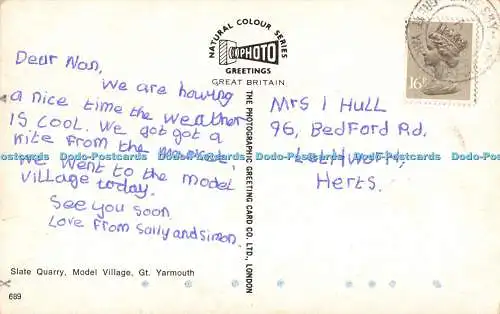 Dear Nan,
We are having
a nice time the weather
IS COOL. We got got a
kite from the
We went to the model
village today.
See you soon
Love from Sally and Simon.
Slate Quarry, Model Village, Gt. Yarmouth
689
NATURAL COLOUR SERIES
PHOTO
GREETINGS
GREAT BRITAIN
THE PHOTOGRAPHIC GREETING CARD CO. LTD., LONDON
16P
Mrs I HULL
96, Bedford Rd,
Letchworth,
Herts.
Dodo-Postcards Dodo-Postcards Dodo-Postcards Dodo-Postcards Dodo-Postcards Dodo-Postcards